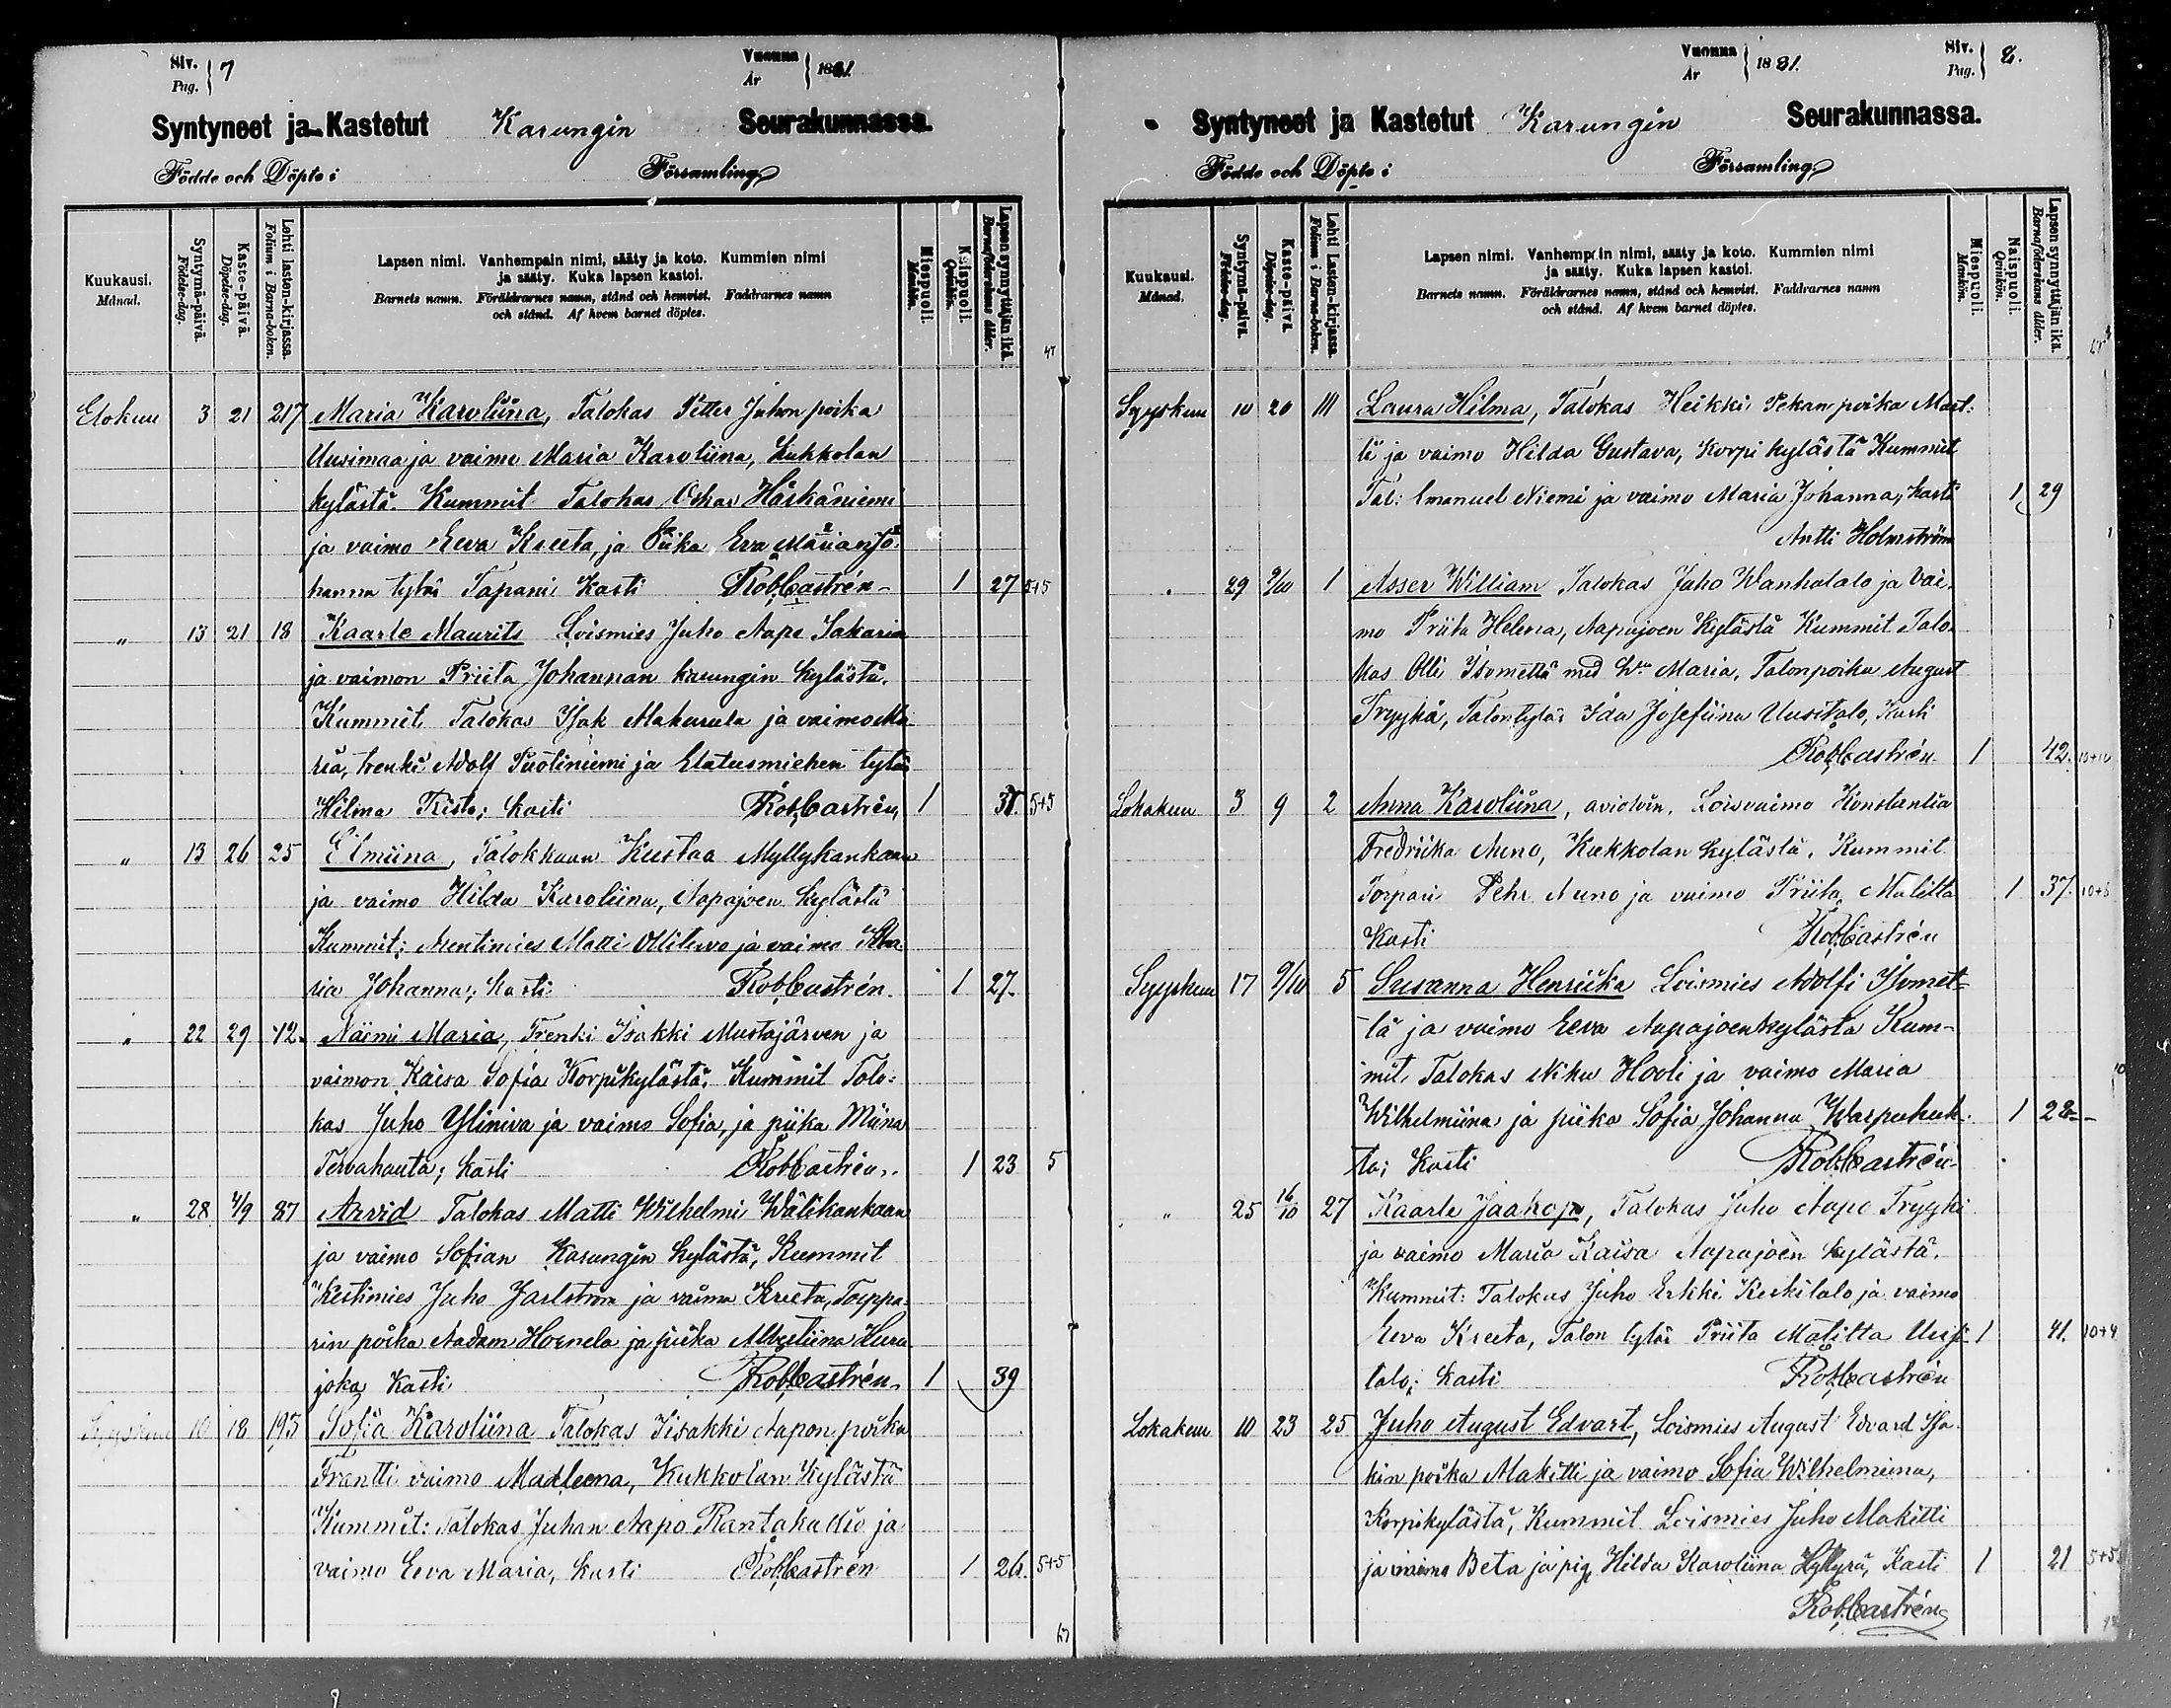 Siv. Pag. 7
Vuonna År 1881.
Syntyneet ja Kastetut Karungin Seurakunnassa.
Födde och Döpte i Församling
Kuukausi. Månad.
Syntymä-päivä. Födelse-dag.
Kaste-päivä. Döpelse-dag.
Lehti lasten-kirjassa. Folium i Barna-boken.
Lapsen nimi. Vanhempain nimi, sääty ja koto. Kummien nimi
ja sääty. Kuka lapsen kastoi.
Barnets namn. Föräldrarnes namn, stånd och hemvist. Faddrarnes namn
och stånd. Af hvem barnet döptes.
Miespuoli. Mankön.
Naispuoli. Qvinkön.
Lapsen synnyttäjän ikä. Barnaföderskans ålder.
Elokuu 3 21 217 Maria Karoliina, Talokas Petter Juhon poika
Uusimaa ja vaimo Maria Karoliina, Kukkolan
kylästä. Kummit Talokas Oskar Häskäniemi
ja vaimo Eeva Kreeta, ja Piika Eva Maria Jo-
hanna tytär Tapani Kasti Rob. Castrén 1 27 5+5
" 13 21 18 Kaarle Maurits Loismies Juho Aape Sakaria
ja vaimon Priita Johannan karungin kylästä.
Kummit Talokas Isak Makurula ja vaimo Ma-
ria, trenki Adolf Puoliniemi ja Elatusmiehen tytär
Hilma Risto; kasti Rob. Castrén, 1 37. 5+5
" 13 26 25 Elmiina, Talokkaan Kustaa Myllykankaan
ja vaimo Hilda Karoliina, Aapajoen kylästä
Kummit: Matti Ollitervo ja vaimo Ma-
ria Johanna; kasti Rob. Castrén. 1 27.
" 22 29 42. Naimi Maria, Trenki Isakki Mustajärven ja
vaimon Kaisa Sofia Korpikylästä. Kummit Talo-
kas Juho Yliniva ja vaimo Sofia, ja piika Miina
Tervahauta; kasti Rob. Castrén. 1 23 5
" 28 4/9 87 Arvid Talokas Matti Wilhelmi Wälikankaan
ja vaimo Sofian Karungin kylästä, Kummit
Kestimies Juho Jarlström ja vaimo Kreeta, Torppa-
rin poika Aadam Hornela ja piika Albertiina Kura
joka Kasti Rob. Castrén. 1 39
Syyskuu 10 18 195 Sofia Karoliina Talokas Iisakki Aapon poika
Frantti vaimo Madleena, Kukkolan kylästä
Kummit: Talokas Juhan Aapo Rantakallio ja
vaimo Eeva Maria, kasti Rob. Castrén 1 26. 5+5
Vuonna År 1881.
Siv. Pag. 8.
Syntyneet ja Kastetut Karungin Seurakunnassa.
Födde och Döpte i Församling
Kuukausi. Månad.
Syntymä-päivä. Födelse-dag.
Kaste-päivä. Döpelse-dag.
Lehti lasten-kirjassa. Folium i Barna-boken.
Lapsen nimi. Vanhempain nimi, sääty ja koto. Kummien nimi
ja sääty. Kuka lapsen kastoi.
Barnets namn. Föräldrarnes namn, stånd och hemvist. Faddrarnes namn
och stånd. Af hvem barnet döptes.
Miespuoli. Mankön.
Naispuoli. Qvinkön.
Lapsen synnyttäjän ikä. Barnaföderskans ålder.
Syyskuu 10 20 111 Laura Hilma, Talokas Heikki Pekan poika Mart-
ti ja vaimo Hilda Gustava, Korpikylästä Kummit
Tal: Emanuel Niemi ja vaimo Maria Johanna, kasti 1 29
Antti Holmström
. 29 9/10 1 Asser William Talokas Juho Wanhatalo ja vai-
mo Priita Helena, Aapajoen kylästä Kummit Talo-
kas Olli Isometsä med hu Maria, Talonpoika August
Fryykä, Talontytär Ida Josefiina Uusitalo, Kasti
Rob. Castrén. 1 42. 10+10
Lokakuu 3 9 2 Anna Karoliina, avioton, Loisvaimo Konstantia
Fredriika Auno, Kukkolan kylästä. Kummit
Torpari Pehr Auno ja vaimo Priita Malitta 1 37. 10+6
Kasti Rob. Castrén
Syyskuu 17 9/10 5 Susanna Henriika Loismies Adolfi Isomet-
tä ja vaimo Eeva Aapajoenkylästä Kum-
mit, Talokas Niku Hooli ja vaimo Maria
Wilhelmiina ja piika Sofia Johanna Warpuhuh- 1 28
ta; Kasti Rob. Castrén.
" 25 16/10 27 Kaarle Jaakop, Talokas Juho Aape Fryyki
ja vaimo Maria Kaisa Aapajoen kylästä.
Kummit: Talokas Juho Erkki Keskitalo ja vaimo
Eeva Kreeta, Talon tytär Priita Malitta Uusi- 1 41. 10+4
talo; kasti Rob. Castrén
Lokakuu 10 23 25 Juho August Edvart, Loismies August Edvard Isa-
kin poika Makitti ja vaimo Sofia Wilhelmiina,
Korpikylästä, Kummit Loismies Juho Makitti
ja vaimo Beta ja pig. Hilda Karoliina Hyttyrä, Kasti 1 21 5+5
Rob. Castrén